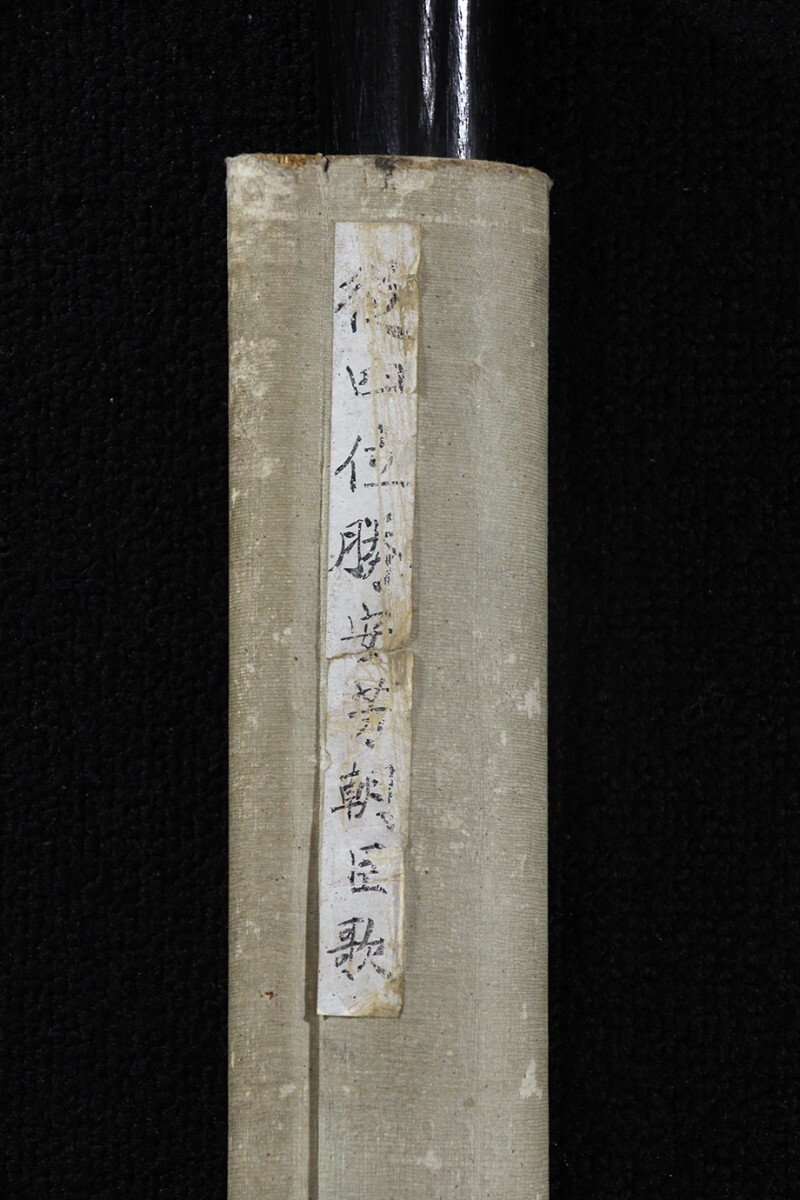 從四位勝安芳朝臣歌